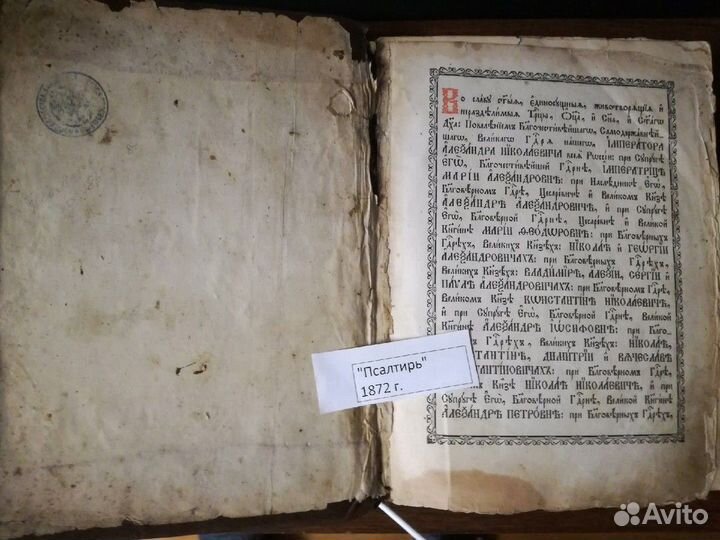 Во славу ст҃ыѧ, є҆диносꙋщныѧ, животворѧщїѧ и҆
нераздѣлимыѧ Трⷪ҇цы, Ѻ҆ц҃а̀, и҆ Сн҃а, и҆ Ст҃а́гѡ
Дх҃а: Повелѣнїемъ Благочестивѣйшагѡ, Самодержавнѣй-
шагѡ, Великагѡ Гдⷭ҇рѧ нашегѡ, ІМПЕРАТОРА
АЛЕѮАНДРА НІКОЛАЕВИЧА всеѧ Рѡссїи: при Сꙋпрꙋгѣ
Є҆гѡ̀, Благочестивѣйшей Гдⷭ҇рнѣ, ІМПЕРАТРИЦѢ
МАРІИ АЛЕѮАНДРОВНѢ: при Наслѣдникѣ Є҆гѡ̀,
Благовѣрномъ Гдⷭ҇рѣ, Цесаревичѣ и҆ Великомъ Кнѧзѣ
АЛЕѮАНДРѢ АЛЕѮАНДРОВИЧѢ, и҆ при Сꙋпрꙋгѣ
Є҆гѡ̀, Благовѣрной Гдⷭ҇рнѣ, Цесаревнѣ и҆ Великой
Кнѧгинѣ МАРІИ ѲЕОДѠРОВНѢ: при Благовѣрныхъ
Гдⷭ҇рѣхъ, Великихъ Кнѧзѣхъ: НІКОЛАѢ и҆ ГЕѠРГІИ
АЛЕѮАНДРОВИЧАХЪ: при Благовѣрныхъ Гдⷭ҇рѣхъ,
Великихъ Кнѧзѣхъ: ВЛАДИМІРѢ, АЛЕѮІИ, СЕРГІИ и҆
ПАѴЛѢ АЛЕѮАНДРОВИЧАХЪ: при Благовѣрномъ Гдⷭ҇рѣ,
Великомъ Кнѧзѣ КѠНСТАНТІНѢ НІКОЛАЕВИЧѢ,
и҆ при Сꙋпрꙋгѣ Є҆гѡ̀, Благовѣрной Гдⷭ҇рнѣ, Великой
Кнѧгинѣ АЛЕѮАНДРѢ ІѠСИФОВНѢ: при Благо-
Гдⷭ҇рѣхъ, Великихъ Кнѧзѣхъ: НІКОЛАѢ,
ДИМИТРІИ и҆ ВѦЧЕСЛАВѢ
при Благовѣрномъ Гдⷭ҇рѣ,
Кнѧзѣ НІКОЛАѢ НІКОЛАЕВИЧѢ, и҆ при
Сꙋпрꙋгѣ Є҆гѡ̀, Благовѣрной Гдⷭ҇рнѣ, Великой Кнѧгинѣ
АЛЕѮАНДРѢ ПЕТРОВНѢ: при Благовѣрныхъ Гдⷭ҇рѣхъ,
"Псалтирь"
1872 г.
Avito